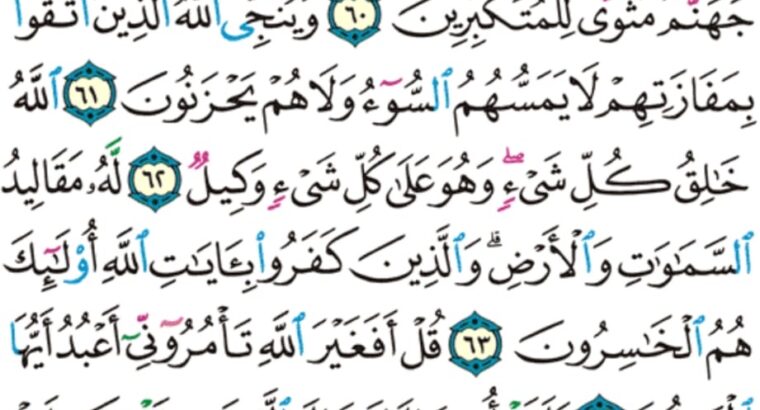 جَهَنَّمَ مَثْوًى لِّلْمُتَكَبِّرِينَ ٦٠ وَيُنَجِّى ٱللَّهُ ٱلَّذِينَ ٱتَّقَوْا۟
بِمَفَازَتِهِمْ لَا يَمَسُّهُمُ ٱلسُّوٓءُ وَلَا هُمْ يَحْزَنُونَ ٦١ ٱللَّهُ
خَٰلِقُ كُلِّ شَىْءٍۖ وَهُوَ عَلَىٰ كُلِّ شَىْءٍ وَكِيلٌ ٦٢ لَّهُۥ مَقَالِيدُ
ٱلسَّمَٰوَٰتِ وَٱلْأَرْضِۗ وَٱلَّذِينَ كَفَرُوا۟ بِـَٔايَٰتِ ٱللَّهِ أُو۟لَٰٓئِكَ
هُمُ ٱلْخَٰسِرُونَ ٦٣ قُلْ أَفَغَيْرَ ٱللَّهِ تَأْمُرُوٓنِّىٓ أَعْبُدُ أَيُّهَا